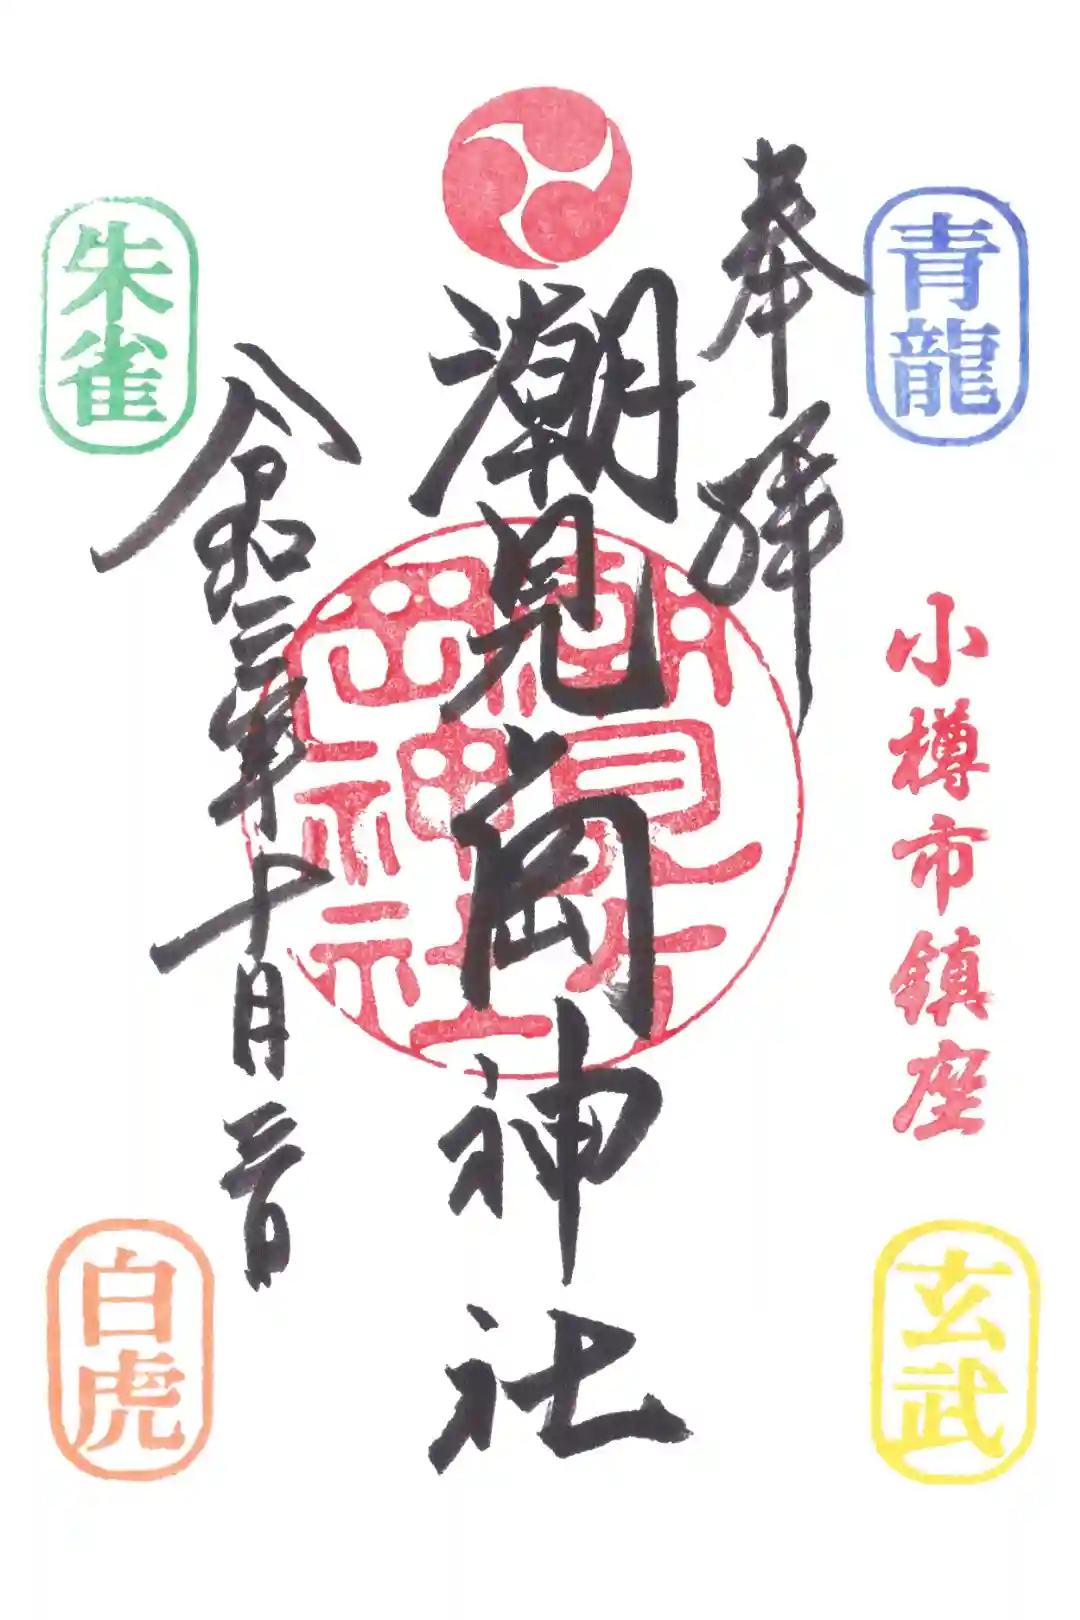 奉拝
青龍
小樽市鎮座
玄武
潮見ヶ岡神社
潮見ヶ岡神社
令和三年十月三日
朱雀
白虎